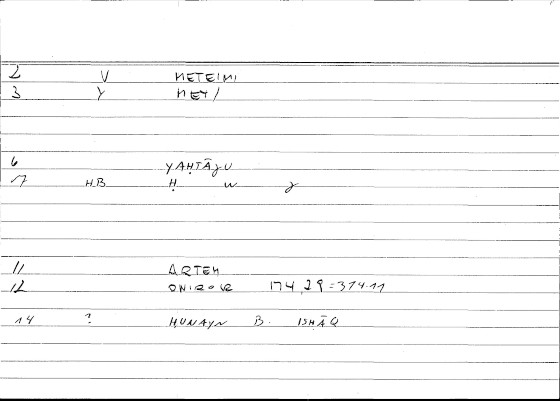 2 V METEIMI
3 Y MET/
6 YAḤTĀǦU
17 H.B Ḥ w ǧ
11 ARTEM
12 ONIROKR 174,29=314.11
14 ? HUNAYN B. ISḤĀQ